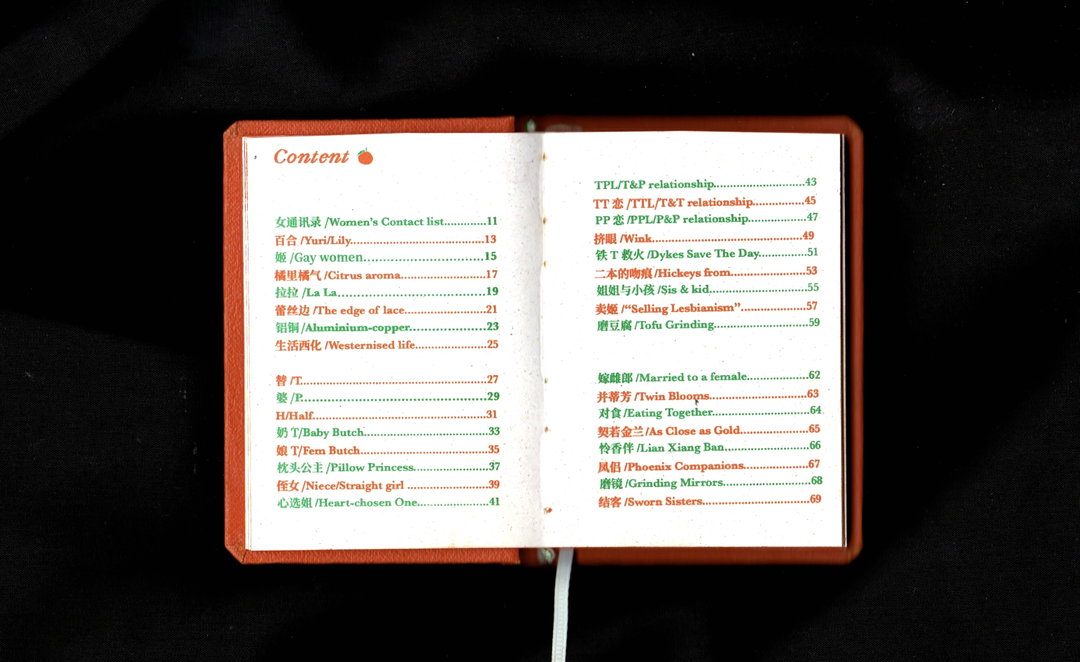 Content
女通讯录 /Women's Contact list............11
百合 /Yuri/Lily.......................................13
姬 /Gay women...................................15
橘里橘气 /Citrus aroma.........................17
拉拉 /La La..........................................19
蕾丝边 /The edge of lace.......................21
铝铜/Aluminium-copper......................23
生活西化 /Westernised life.....................25
替 /T.....................................................27
婆 /P.....................................................29
H/Half..................................................31
奶 T/Baby Butch...................................33
娘 T/Fem Butch....................................35
枕头公主 /Pillow Princess......................37
侄女 /Niece/Straight girl .......................39
心选姐 /Heart-chosen One.....................41
TPL/T&P relationship.........................43
TT 恋 /TTL/T&T relationship................45
PP 恋 /PPL/P&P relationship.................47
挤眼 /Wink...........................................49
铁 T 救火 /Dykes Save The Day.............51
二本的吻痕/Hickeys from......................53
姐姐与小孩 /Sis & kid...........................55
卖姬 /“Selling Lesbianism”...................57
磨豆腐 /Tofu Grinding..........................59
嫁雌郎 /Married to a female...................62
并蒂芳 /Twin Blooms............................63
对食 /Eating Together...........................64
契若金兰/As Close as Gold....................65
怜香伴 /Lian Xiang Ban........................66
凤侣 /Phoenix Companions...................67
磨镜 /Grinding Mirrors..........................68
结客 /Sworn Sisters...............................69